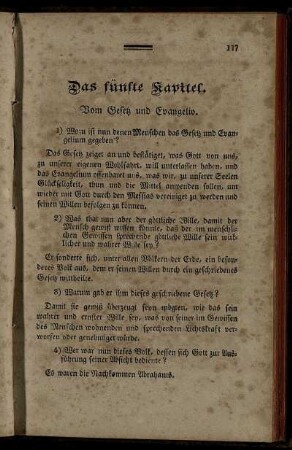 117
Das fünfte Kapitel.
Vom Gesetz und Evangelio.
1) Worzu ist nun denen Menschen das Gesetz und Evan-
gelium gegeben?
Das Gesetz zeiget an und bestätiget, was Gott von uns,
zu unserer eigenen Wohlfahrt, will unterlassen haben, und
das Evangelium offenbaret uns, was wir, zu unserer Seelen
Glückseligkeit, thun und die Mittel anwenden sollen, um
wieder mit Gott durch den Messias vereiniget zu werden und
seinen Willen befolgen zu können.
2) Was that nun aber der göttliche Wille, damit der
Mensch gewiß wissen konnte, das der im menschli-
chen Gewissen sprechende göttliche Wille sein würk-
licher und wahrer Wille sey?
Er sonderte sich, unter allen Völkern der Erde, ein beson-
deres Volk aus, dem er seinen Willen durch ein geschriebenes
Gesetz mittheilte.
3) Warum gab er ihm dieses geschriebene Gesetz?
Damit sie gewiß überzeugt seyn mögten, wie das sein
wahrer und ernster Wille sey, was von seiner im Gewissen
des Menschen wohnenden und sprechenden Lichtskraft ver-
worfen oder genehmiget würde.
4) Wer war nun dieses Volk, dessen sich Gott zur Aus-
führung seiner Absicht bediente?
Es waren die Nachkommen Abrahams.